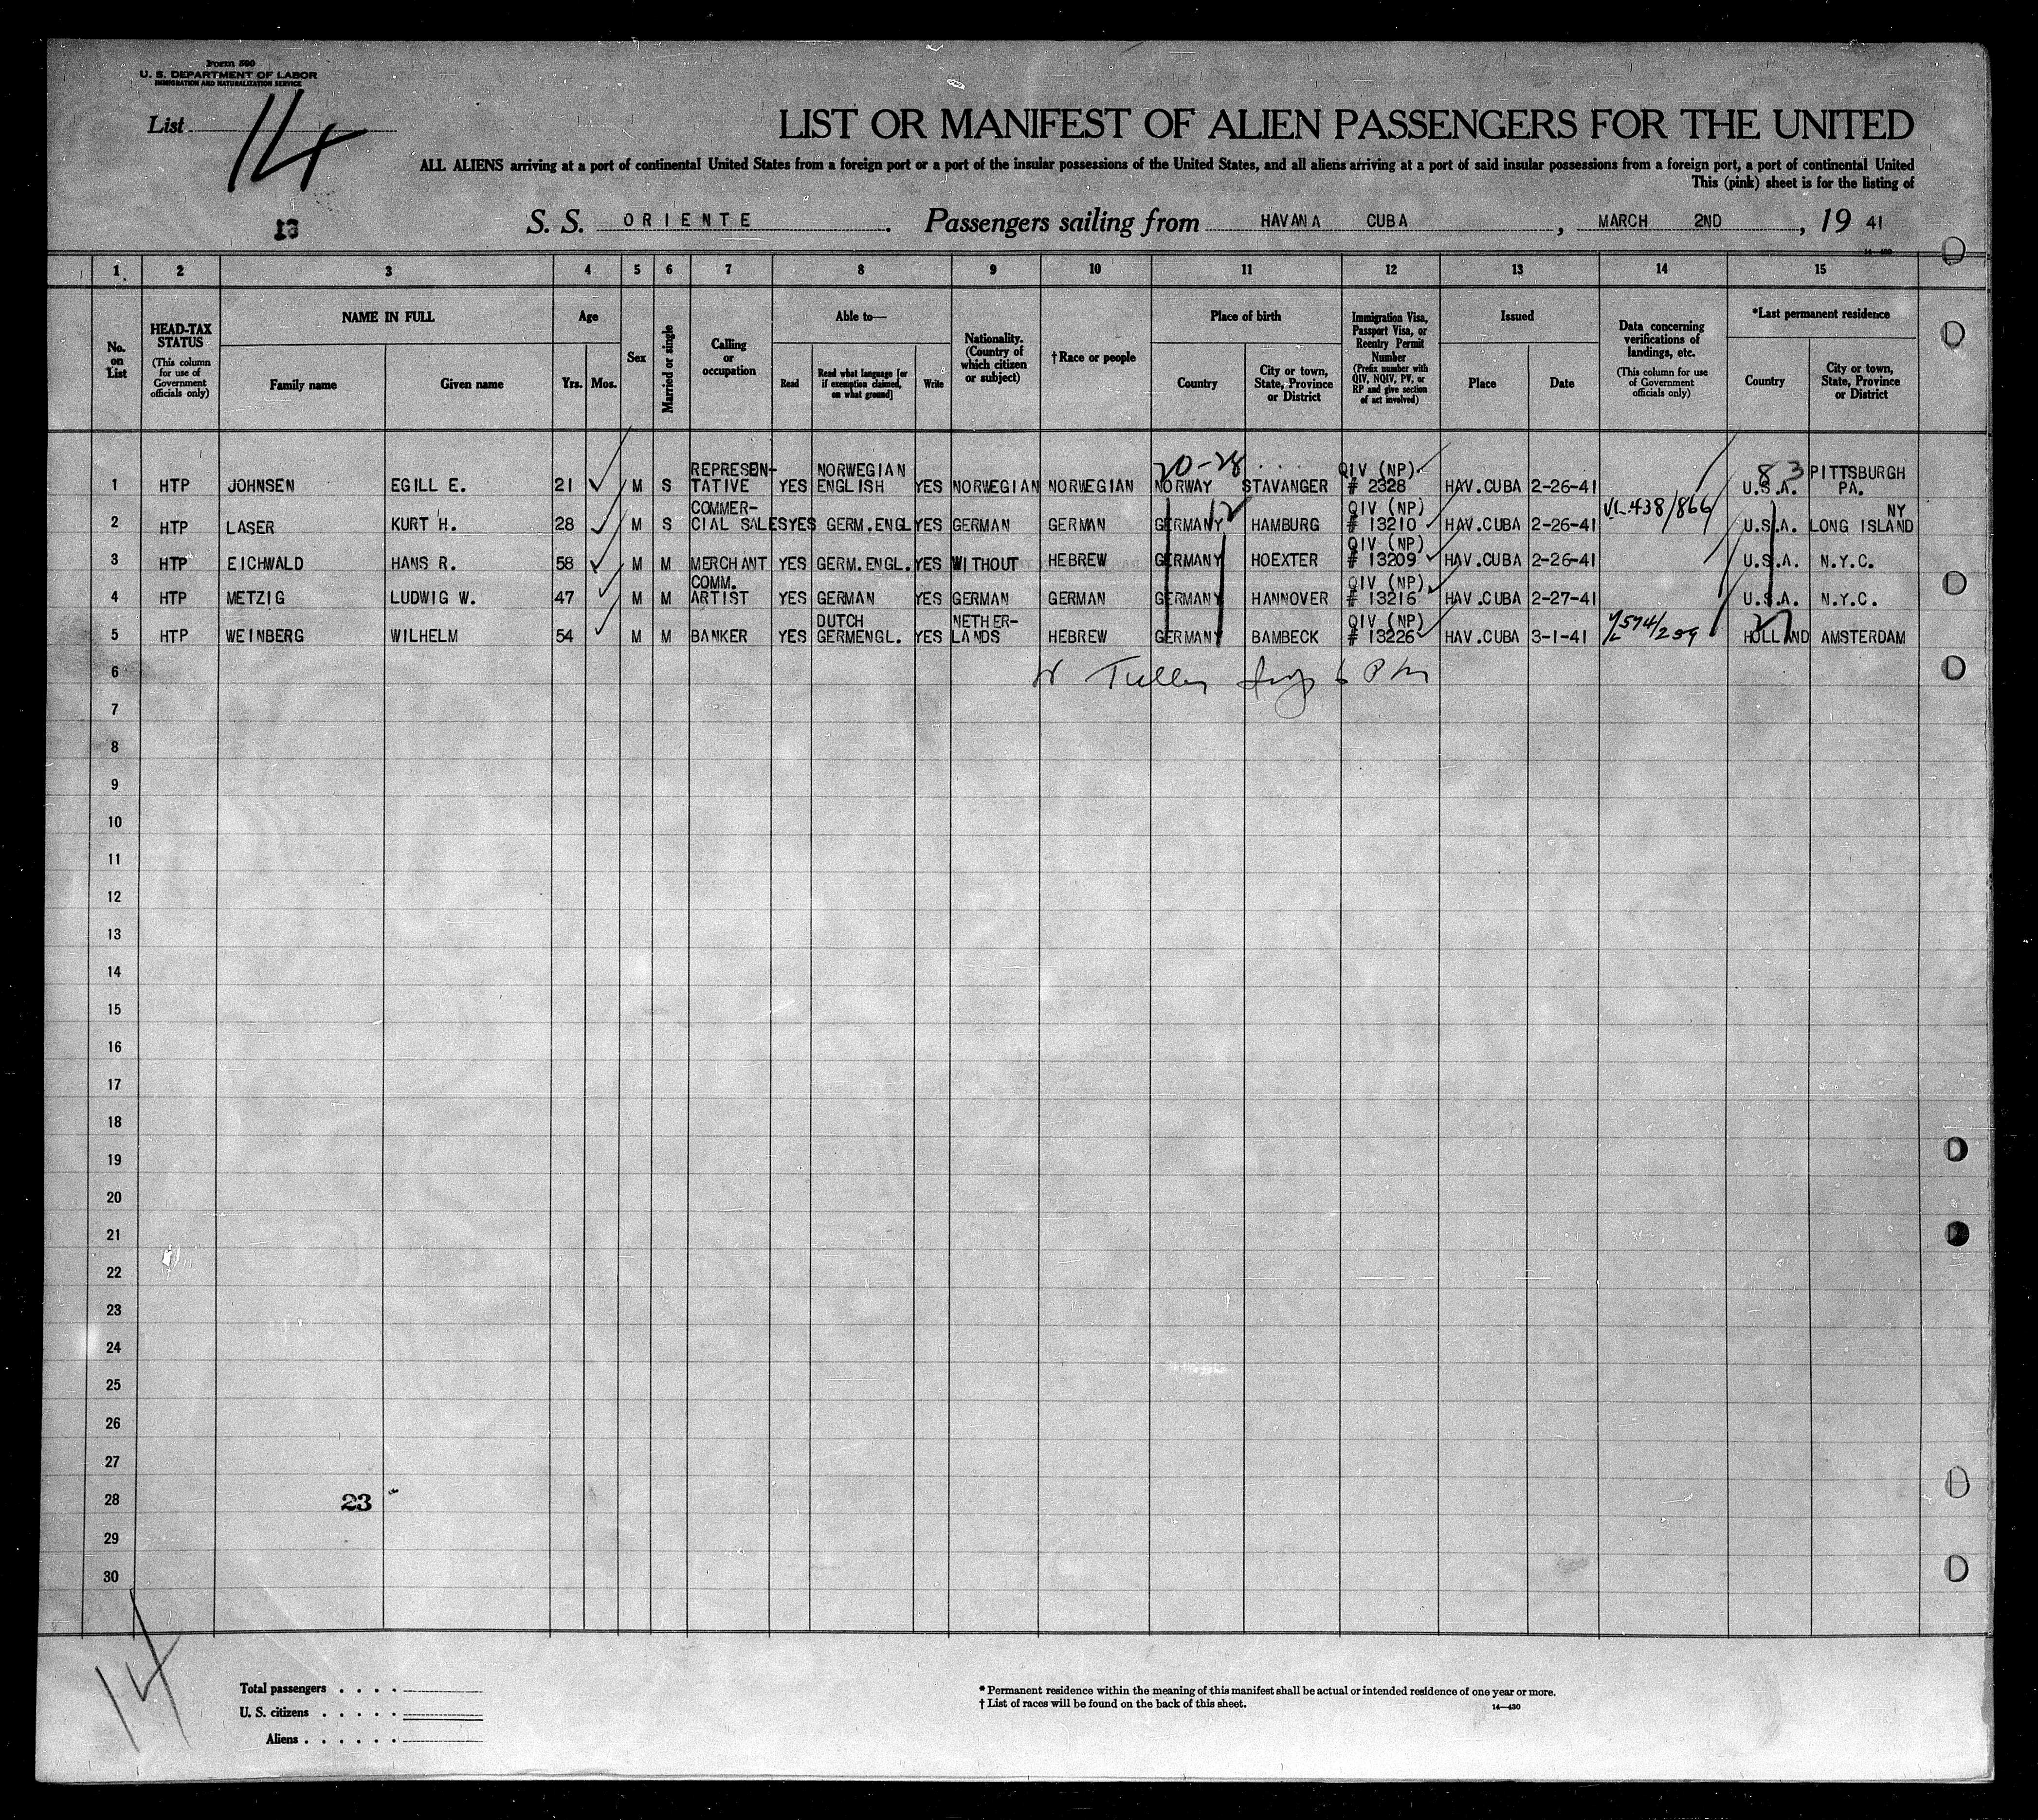 Form 500
U. S. DEPARTMENT OF LABOR
IMMIGRATION AND NATURALIZATION SERVICE
List 14
LIST OR MANIFEST OF ALIEN PASSENGERS FOR THE UNITED
ALL ALIENS arriving at a port of continental United States from a foreign port or a port of the insular possessions of the United States, and all aliens arriving at a port of said insular possessions from a foreign port, a port of continental United
This (pink) sheet is for the listing of
13
S. S. ORIENTE. Passengers sailing from HAVANA CUBA, MARCH 2ND, 19 41
14—430
1 2 3 4 5 6 7 8 9 10 11 12 13 14 15
No. on List
HEAD-TAX STATUS (This column for use of Government officials only)
NAME IN FULL
Family name Given name
Age
Yrs. Mos.
Sex
Married or single
Calling or occupation
Able to—
Read Read what language [or if exemption claimed, on what ground] Write
Nationality. (Country of which citizen or subject)
†Race or people
Place of birth
Country City or town, State, Province or District
Immigration Visa, Passport Visa, or Reentry Permit Number (Prefix number with QIV, NQIV, PV, or RP and give section of act involved)
Issued
Place Date
Data concerning verifications of landings, etc. (This column for use of Government officials only)
*Last permanent residence
Country City or town, State, Province or District
20-28 83
1 HTP JOHNSEN EGILL E. 21 M S REPRESEN-TATIVE YES NORWEGIAN ENGLISH YES NORWEGIAN NORWEGIAN NORWAY STAVANGER QIV (NP) # 2328 HAV.CUBA 2-26-41 U.S.A. PITTSBURGH PA.
2 HTP LASER KURT H. 28 M S COMMER-CIAL SALES YES GERM.ENGL YES GERMAN GERMAN GERMANY 12 HAMBURG QIV (NP) # 13210 HAV.CUBA 2-26-41 VL.438/866 U.S.A. NY LONG ISLAND
3 HTP EICHWALD HANS R. 58 M M MERCHANT YES GERM.ENGL. YES WITHOUT HEBREW GERMANY HOEXTER QIV (NP) # 13209 HAV.CUBA 2-26-41 U.S.A. N.Y.C.
4 HTP METZIG LUDWIG W. 47 M M COMM. ARTIST YES GERMAN YES GERMAN GERMAN GERMANY HANNOVER QIV (NP) # 13216 HAV.CUBA 2-27-41 U.S.A. N.Y.C.
5 HTP WEINBERG WILHELM 54 M M BANKER YES DUTCH GERMENGL. YES NETHER-LANDS HEBREW GERMANY BAMBECK QIV (NP) # 13226 HAV.CUBA 3-1-41 574/259 HOLLAND 27 AMSTERDAM
6
7
8
9
10
11
12
13
14
15
16
17
18
19
20
21
22
23
24
25
26
27
28 23
29
30
14
Total passengers . . . .
U. S. citizens . . . . .
Aliens . . . . . .
* Permanent residence within the meaning of this manifest shall be actual or intended residence of one year or more.
† List of races will be found on the back of this sheet.
14—430